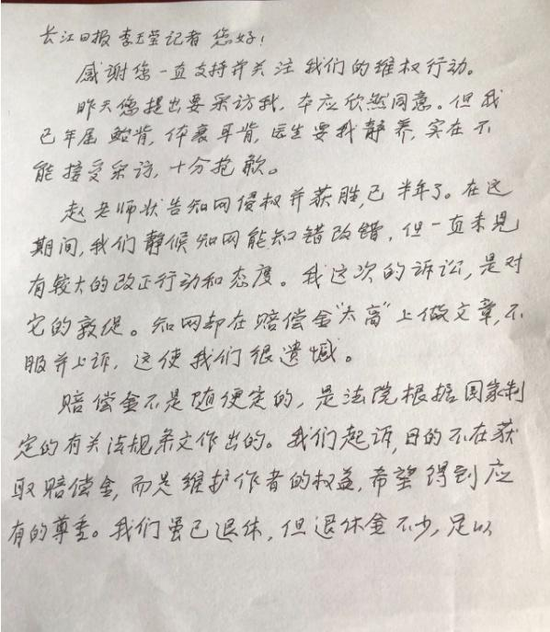 长江日报 李玉莹记者 您好!
感谢您一直支持并关注我们的维权行动。
昨天您提出要采访我,本应欣然同意。但我
已年届鲐背,体衰耳背,医生要我静养,实在不
能接受采访,十分抱歉。
赵老师状告知网侵权并获胜,已半年了。在这
期间,我们静候知网能知错改错,但一直未见
有较大的改正行动和态度。我这次的诉讼,是对
它的敦促。知网却在赔偿金"太高"上做文章,不
服并上诉,这使我们很遗憾。
赔偿金不是随便定的,是法院根据国家制
定的有关法规条文作出的。我们起诉,目的不在获
取赔偿金,而是维护作者的权益,希望得到应
有的尊重。我们虽已退休,但退休金不少,足以